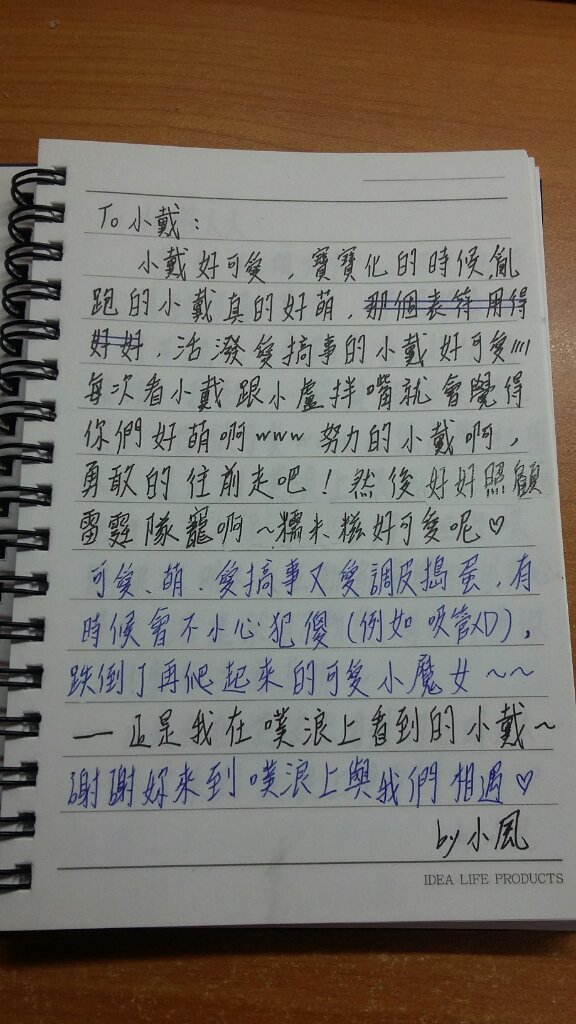 To 小戴：
小戴好可愛、寶寶化的時候亂
跑的小戴真的好萌，那個表符用得
好好，活潑愛搞事的小戴好可愛////
每次看小戴跟小盧拌嘴就會覺得
你們好萌啊www 努力的小戴啊，
勇敢的往前走吧！然後好好照顧
雷霆隊寵啊～糯米糍好可愛呢♡
可愛、萌、愛搞事又愛調皮搗蛋，有
時候會不小心犯傻（例如吸管XD），
跌倒了再爬起來的可愛小魔女～～
——正是我在噗浪上看到的小戴～
謝謝妳來到噗浪上與我們相遇♡
by 小風
IDEA LIFE PRODUCTS